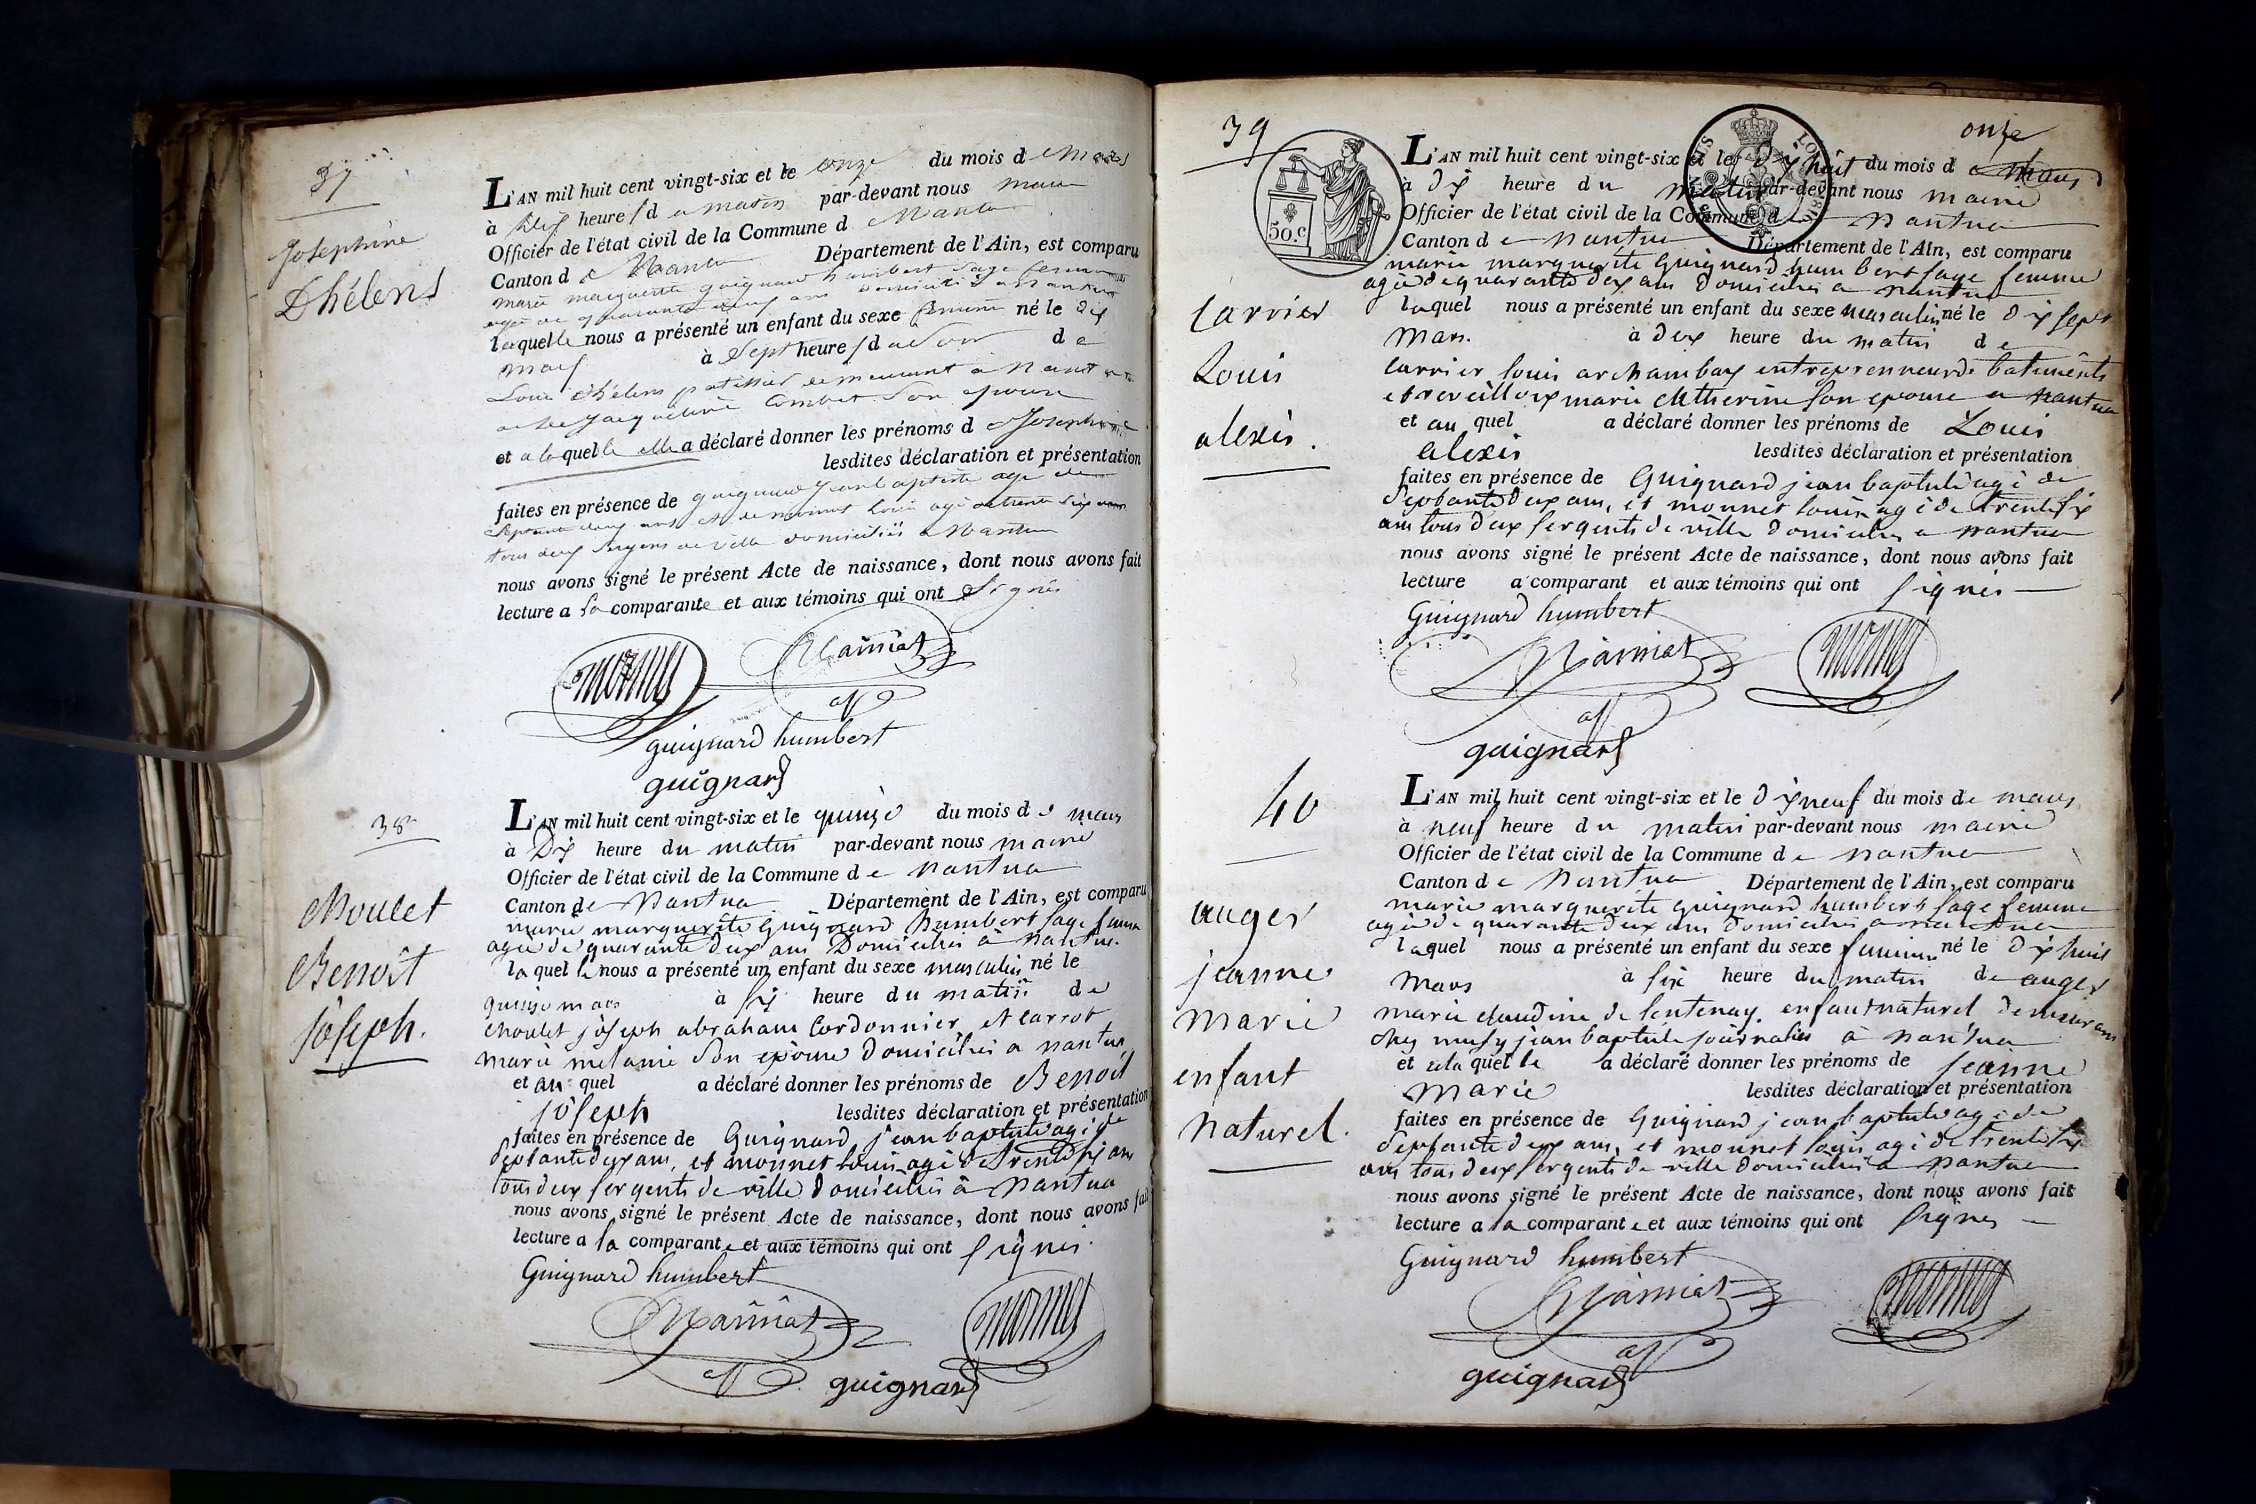 37
Josephine
Dhélens
L'AN mil huit cent vingt-six et le onze du mois de Mars
à dix heure/ du matin par-devant nous maire
Officier de l'état civil de la Commune de Nantua
Canton de Nantua Département de l'Ain, est comparu
marie marguerite guignard humbert sage femme
agée de quarante deux ans domiciliée a Nantua
laquelle nous a présenté un enfant du sexe feminin né le dix
mars à Sept heure/ du Soir de
Louis dhélens patissier demeurant à Nantua
et de jacqueline Combet Son epouse
et a laquelle elle a déclaré donner les prénoms de Josephine
lesdites déclaration et présentation
faites en présence de guignard jean baptiste agé de
Septante deux ans et de monnet louis agé de trente Six ans
tous deux Sergens de ville domiciliés a Nantua
nous avons signé le présent Acte de naissance, dont nous avons fait
lecture a la comparante et aux témoins qui ont Signés
monnet
guignard humbert
guignard
38
Moulet
Benoît
jôseph.
L'AN mil huit cent vingt-six et le quinze du mois de mars
à Dix heure du matin par-devant nous maire
Officier de l'état civil de la Commune de Nantua
Canton de Nantua Département de l'Ain, est comparu
marie marguerite Guignard humbert sage femme
agée de quarante deux ans Domiciliée à Nantua.
laquelle nous a présenté un enfant du sexe masculin né le
quinze mars à six heure du matin de
Moulet jôseph abraham Cordonnier et Carrot
marie melanie Son epouse domiciliés a nantua
et au quel a déclaré donner les prénoms de Benoit
jôseph lesdites déclaration et présentation
faites en présence de Guignard jean baptiste agé de
Septante deux ans, et monnet louis agé de trente six ans
tous deux sergents de ville domiciliés à Nantua
nous avons signé le présent Acte de naissance, dont nous avons fait
lecture a la comparante et aux témoins qui ont signés.
Guignard humbert
monnet
guignard
39
50.C
onze
Carrier
Louis
alexis.
L'AN mil huit cent vingt-six et le dix huit du mois de mars
à dix heure du matin par-devant nous maire
Officier de l'état civil de la Commune de nantua
Canton de nantua Département de l'Ain, est comparu
marie marguerite guignard humbert sage femme
agée de quarante deux ans domiciliée a nantua
laquel nous a présenté un enfant du sexe masculin né le dix sept
Mars. à deux heure du matin de
Carrier louis archambaux entreprenneur de batiments
et reveilloux marie Catherine son epouse a nantua
et au quel a déclaré donner les prénoms de Louis
alexis lesdites déclaration et présentation
faites en présence de Guignard jean baptiste agé de
Septante deux ans, et monnet louis agé de trente six
ans tous deux sergents de ville domiciliés a nantua
nous avons signé le présent Acte de naissance, dont nous avons fait
lecture a comparant et aux témoins qui ont signés
Guignard humbert
monnet
guignard
40
auger
jeanne
marie
enfant
naturel.
L'AN mil huit cent vingt-six et le dix neuf du mois de mars
à neuf heure du matin par-devant nous maire
Officier de l'état civil de la Commune de nantua
Canton de Nantua Département de l'Ain, est comparu
marie marguerite guignard humbert sage femme
agée de quarante deux ans domiciliée a nantua
laquel nous a présenté un enfant du sexe feminin né le dix huit
Mars à six heure du matin de auger
marie claudine de lentenay. enfant naturel demeurant
chez jean baptiste journalier à nantua
et a la quelle a déclaré donner les prénoms de jeanne
Marie lesdites déclaration et présentation
faites en présence de Guignard jean baptiste agé de
Septante deux ans, et monnet louis agé de trente six
ans tous deux sergents de ville domiciliés a nantua
nous avons signé le présent Acte de naissance, dont nous avons fait
lecture a la comparante et aux témoins qui ont signés
Guignard humbert
monnet
guignard